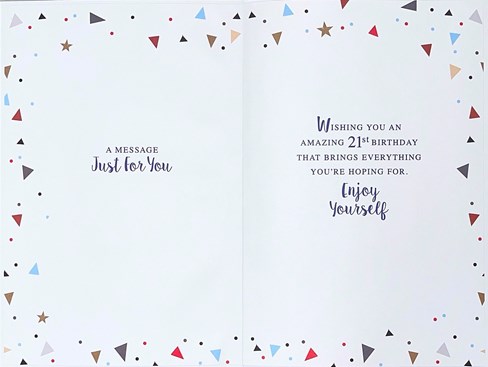 A MESSAGE
Just For You
WISHING YOU AN
AMAZING 21st BIRTHDAY
THAT BRINGS EVERYTHING
YOU'RE HOPING FOR.
Enjoy
Yourself